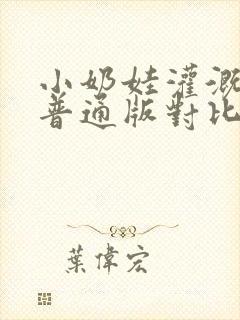 小奶娃灌溉
普通版對比
葉偉宏